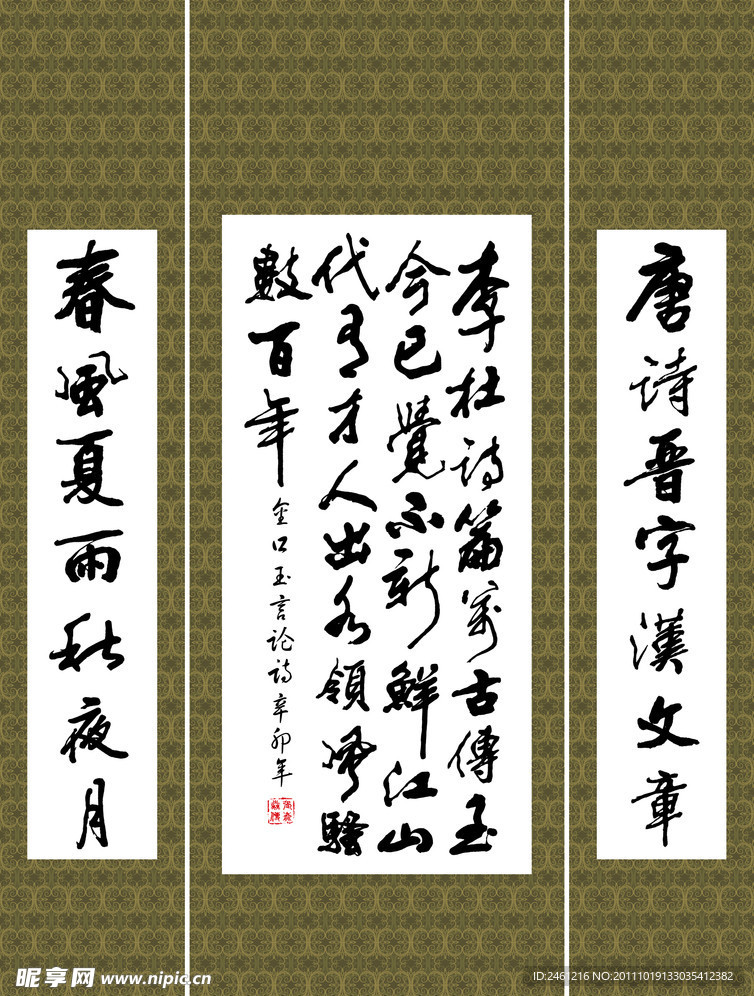 唐诗晋字漢文章
李杜诗篇萬古傳至
今已覺不新鮮江山
代有才人出各領風騷
數百年
金口玉言论诗辛卯年
春風夏雨秋夜月
昵享网 www.nipic.cn
ID:2461216 NO:20111019133035412382